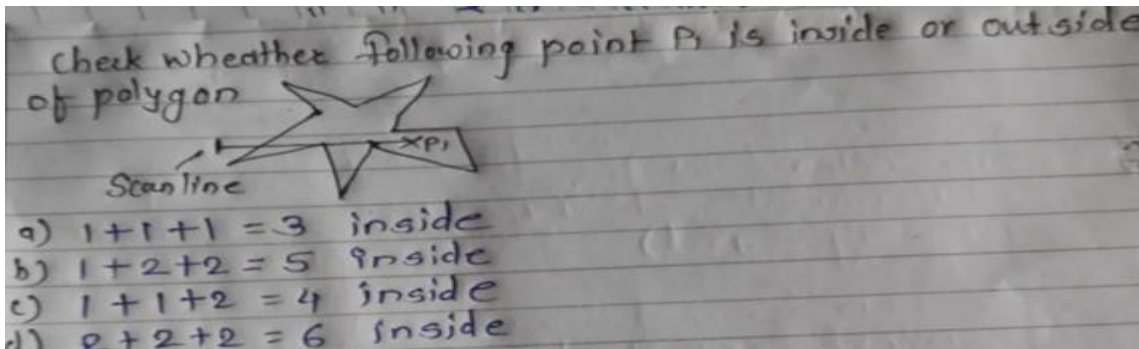 Check wheather following point P1 is inside or outside
of polygon
XP1
Scanline
a) 1+1+1 = 3 inside
b) 1+2+2 = 5 inside
c) 1+1+2 = 4 inside
d) 2+2+2 = 6 inside